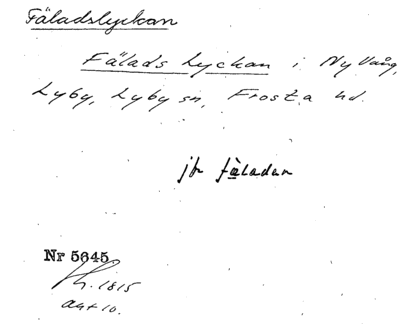 Fäladslyckan
Fälads Lyckan i Ny Vång,
Lyby, Lyby sn, Frosta hd.
jfr fäladen
Nr 5645
1815
akt 10.